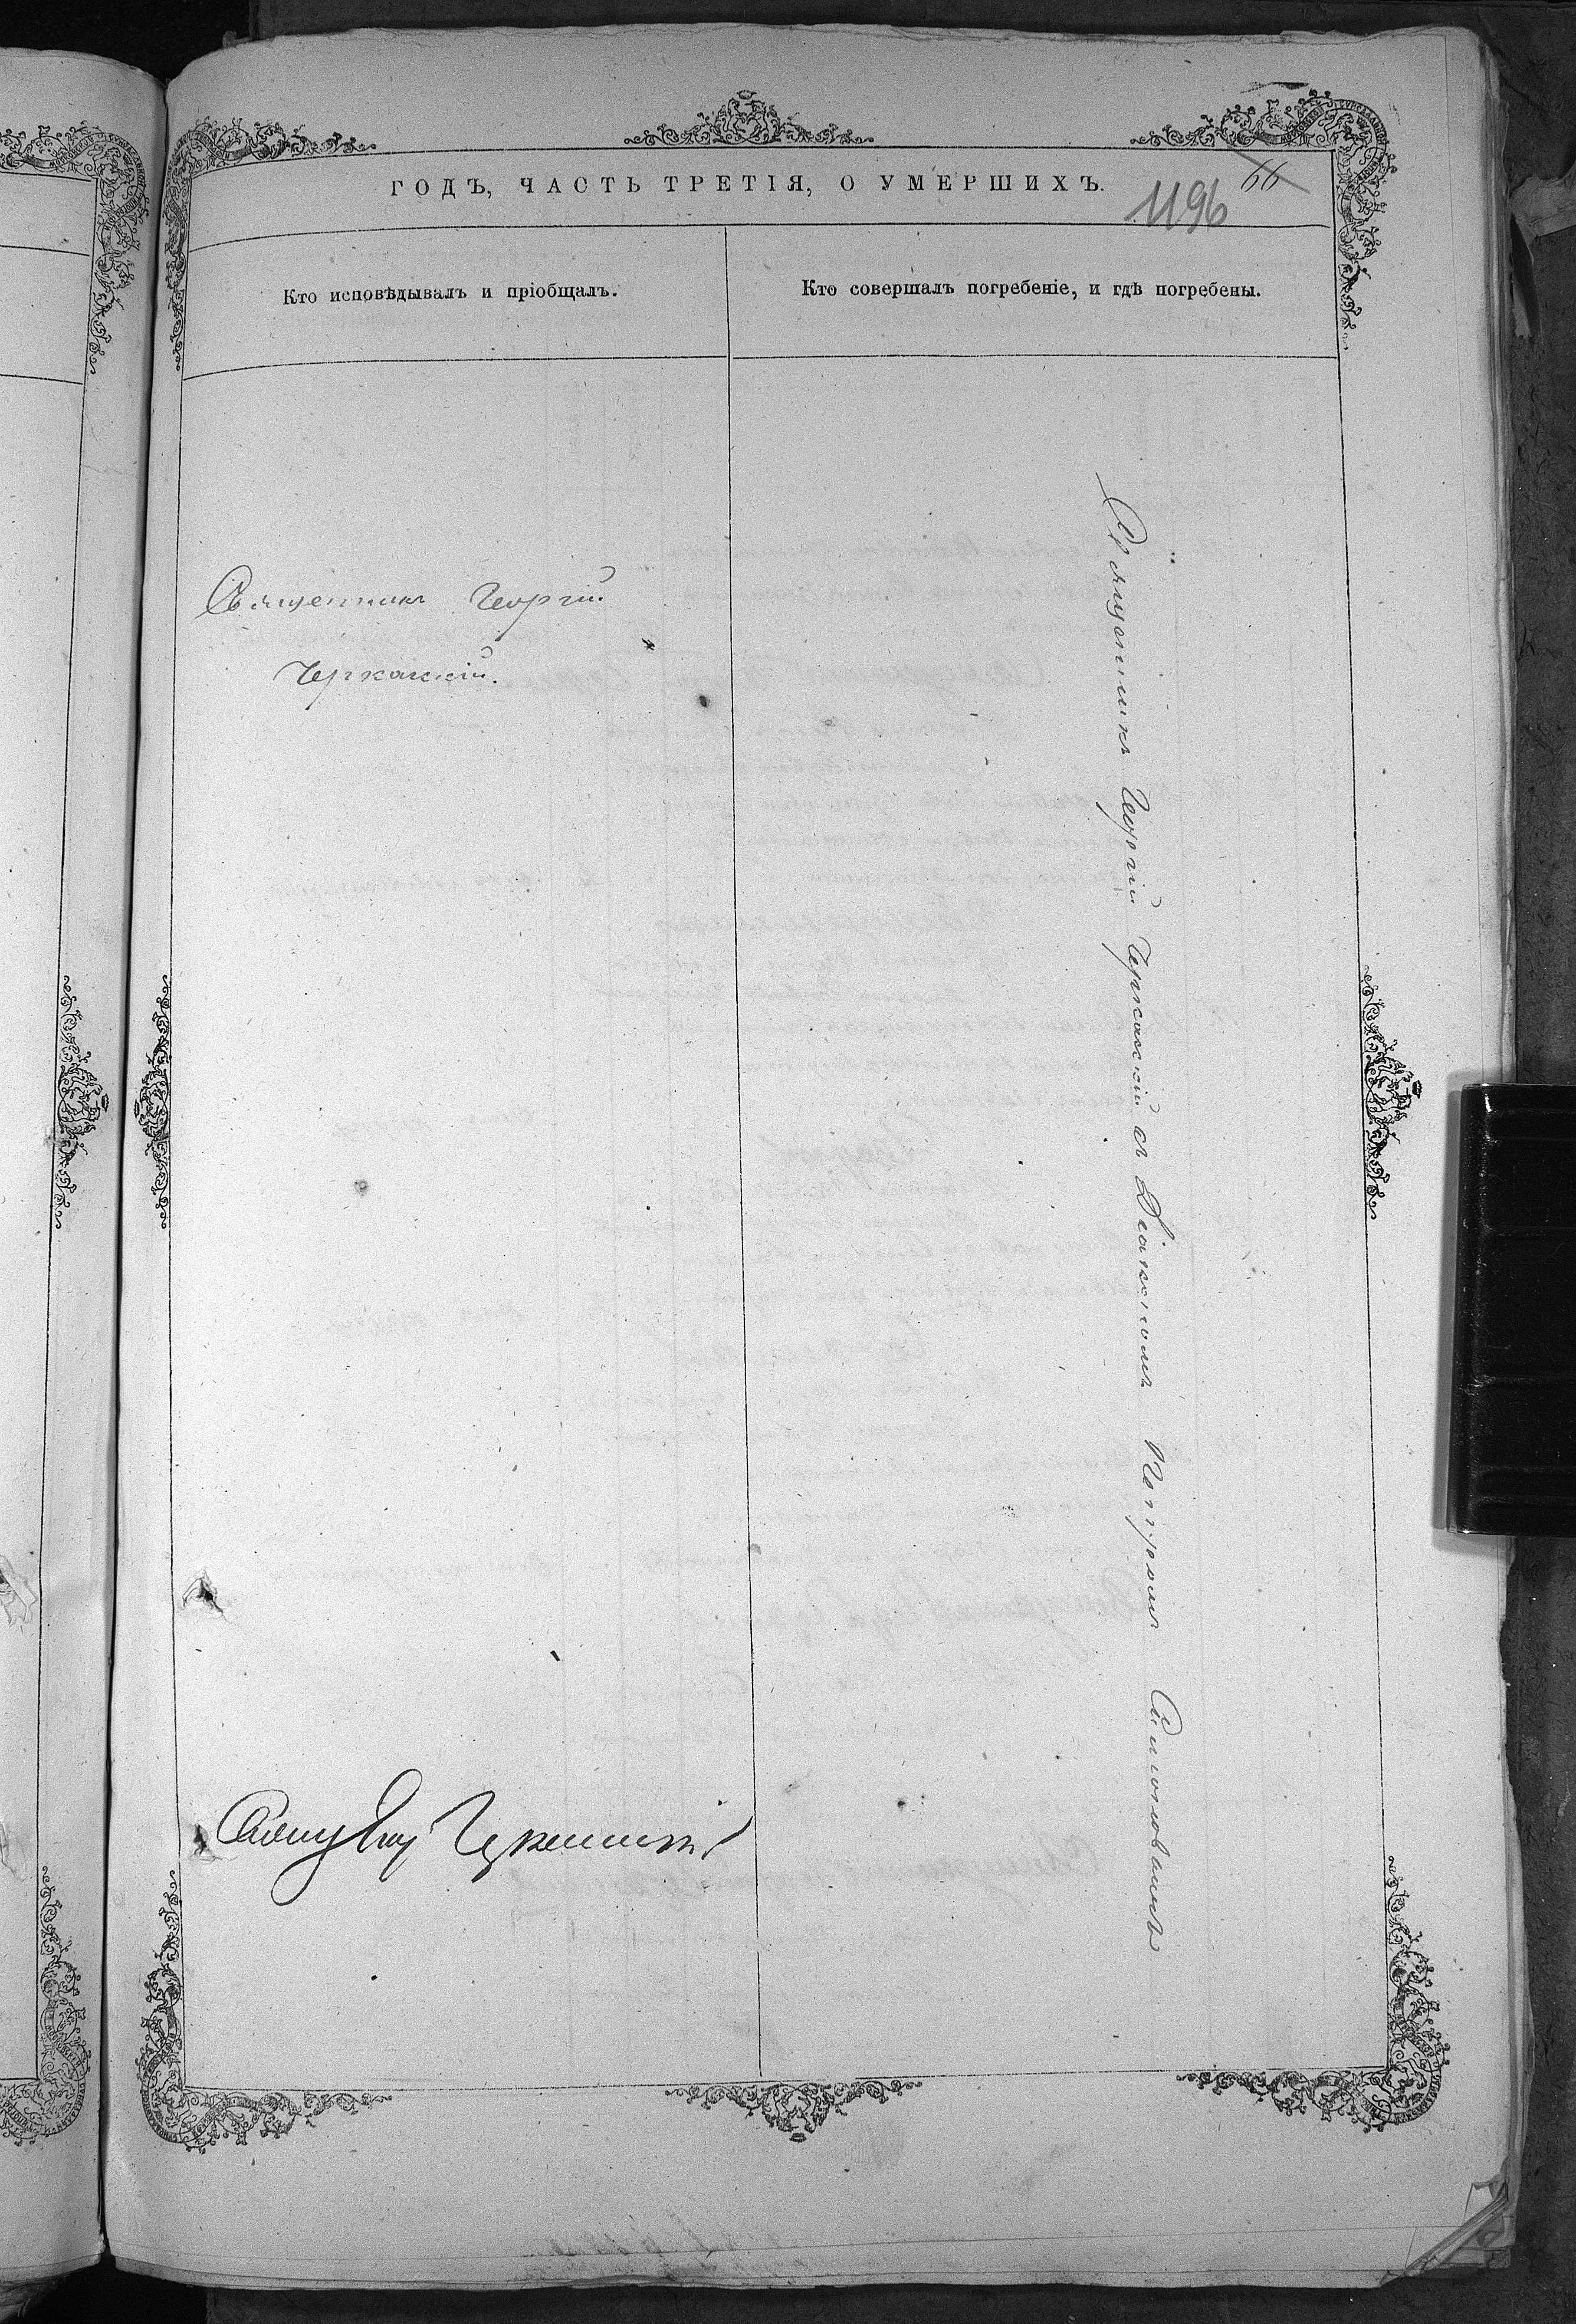 ГОДЪ, ЧАСТЬ ТРЕТІЯ, О УМЕРШИХЪ.
66
1196
Кто исповѣдывалъ и пріобщалъ.
Кто совершалъ погребеніе, и гдѣ погребены.
Священникъ Георгій
Черкасскій.
Священникъ Георгій Черкасскій съ Діакономъ Петромъ